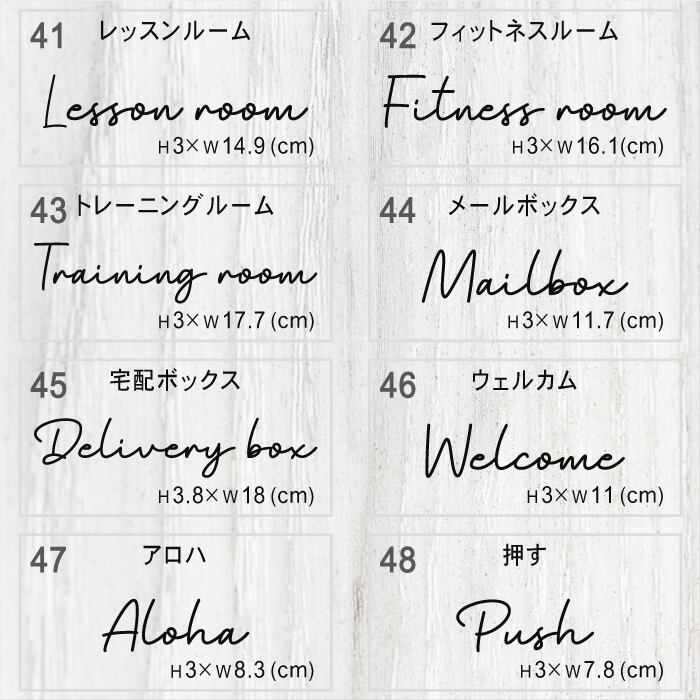 41 レッスンルーム
Lesson room
H3×W14.9(cm)
42 フィットネスルーム
Fitness room
H3×W16.1(cm)
43 トレーニングルーム
Training room
H3×W17.7(cm)
44 メールボックス
Mailbox
H3×W11.7(cm)
45 宅配ボックス
Delivery box
H3.8×W18(cm)
46 ウェルカム
Welcome
H3×W11(cm)
47 アロハ
Aloha
H3×W8.3(cm)
48 押す
Push
H3×W7.8(cm)